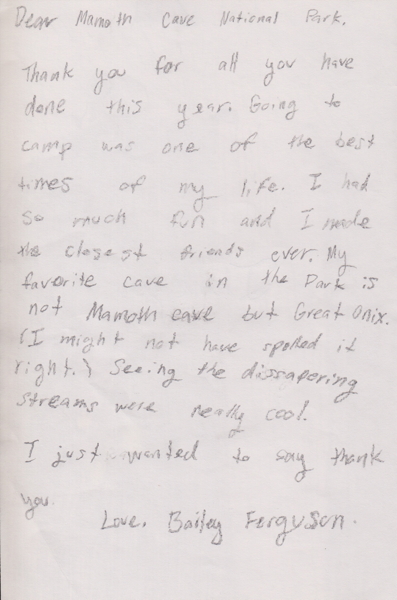 Dear Mamoth Cave National Park.
Thank you for all you have
done this year. Going to
camp was one of the best
times of my life. I had
so much fun and I made
the closest friends ever. My
favorite cave in the Park is
not Mamoth cave but Great Onix.
(I might not have spelled it
right.) Seeing the dissaporing
streams were really cool.
I just wanted to say thank
you.
Love, Bailey Ferguson.